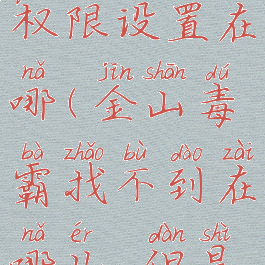 权限设置在
nǎ jīn shān dú
哪(金山毒
bà zhǎo bù dào zài
霸找不到在
nǎ ér dàn shì